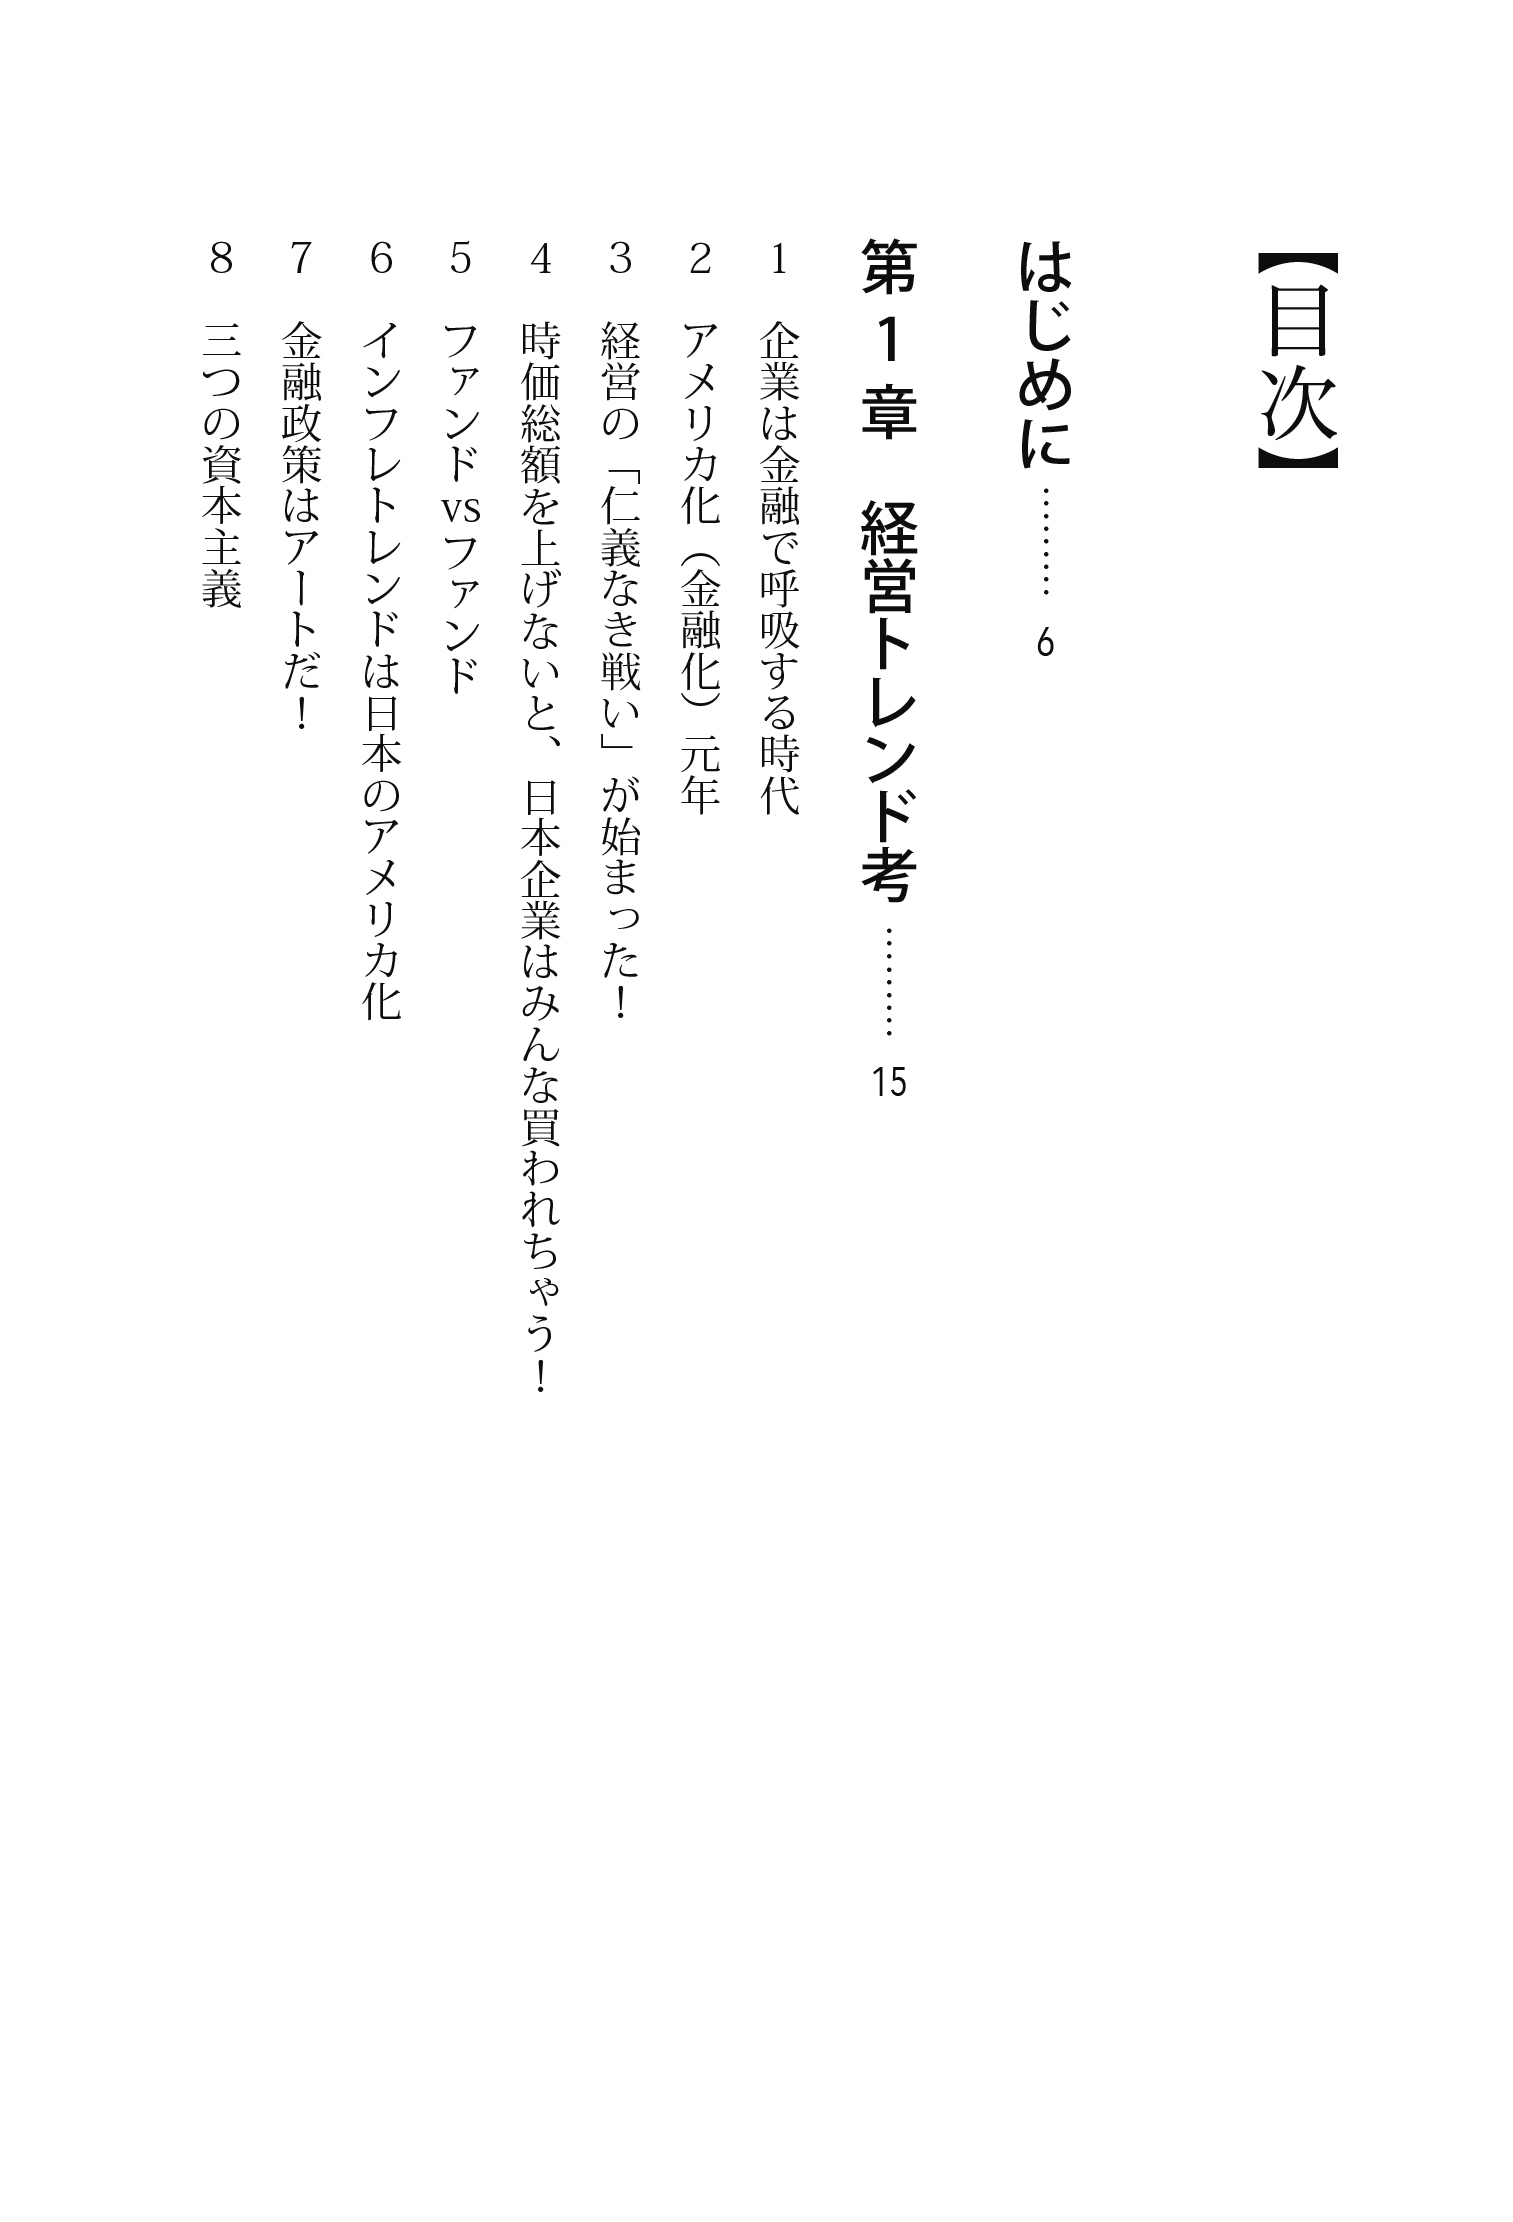 【目次】
はじめに……… 6
第1章　経営トレンド考……… 15
1　企業は金融で呼吸する時代
2　アメリカ化（金融化）元年
3　経営の「仁義なき戦い」が始まった！
4　時価総額を上げないと、日本企業はみんな買われちゃう！
5　ファンドvsファンド
6　インフレトレンドは日本のアメリカ化
7　金融政策はアートだ！
8　三つの資本主義